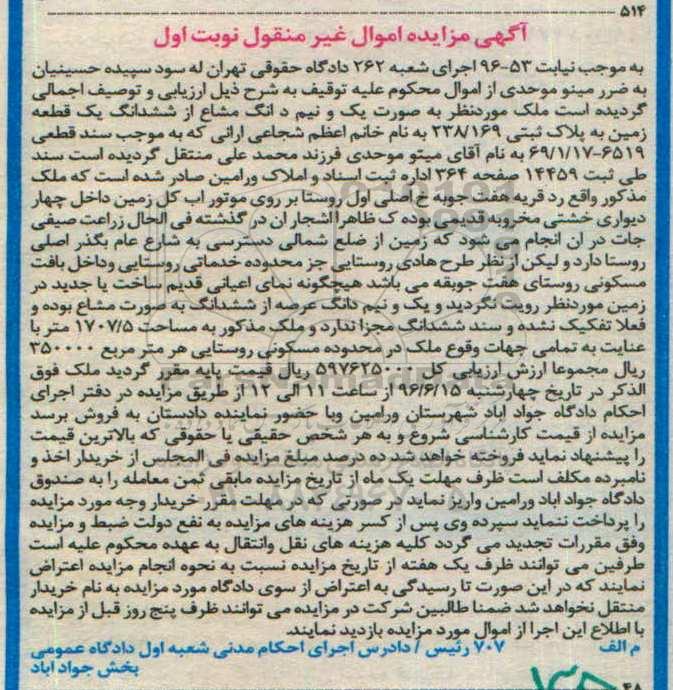 ۵۱۴
آگهی مزایده اموال غیر منقول نوبت اول
به موجب نیابت ۵۳-۹۶ اجرای شعبه ۲۶۲ دادگاه حقوقی تهران له سود سپیده حسینیان
به ضرر مینو موحدی از اموال محکوم علیه توقیف به شرح ذیل ارزیابی و توصیف اجمالی
گردیده است ملک موردنظر به صورت یک و نیم د انگ مشاع از ششدانگ یک قطعه
زمین به پلاک ثبتی ۲۳۸/۱۶۹ به نام خانم اعظم شجاعی ارانی که به موجب سند قطعی
۶۹/۱/۱۷-۶۵۱۹ به نام آقای میتو موحدی فرزند محمد علی منتقل گردیده است سند
طی ثبت ۱۴۴۵۹ صفحه ۳۶۴ اداره ثبت اسناد و املاک ورامین صادر شده است که ملک
مذکور واقع رد قریه هفت جوبه خ اصلی اول روستا بر روی موتور اب کل زمین داخل چهار
دیواری خشتی مخروبه قدیمی بوده ک ظاهرا اشجار ان در گذشته فی الحال زراعت صیفی
جات در ان انجام می شود که زمین از ضلع شمالی دسترسی به شارع عام بگذر اصلی
روستا دارد و لیکن از نظر طرح هادی روستایی جز محدوده خدماتی روستایی وداخل بافت
مسکونی روستای هفت جوبقه می باشد هیچگونه نمای اعیانی قدیم ساخت یا جدید در
زمین موردنظر رویت نگردید و یک و نیم دانگ عرصه از ششدانگ به صورت مشاع بوده و
فعلا تفکیک نشده و سند ششدانگ مجزا ندارد و ملک مذکور به مساحت ۱۷۰۷/۵ متر با
عنایت به تمامی جهات وقوع ملک در محدوده مسکونی روستایی هر متر مربع ۳۵۰۰۰۰
ریال مجموعا ارزش ارزیابی کل ۵۹۷۶۲۵۰۰۰ ریال قیمت پایه مقرر گردید ملک فوق
الذکر در تاریخ چهارشنبه ۹۶/۶/۱۵ از ساعت ۱۱ الی ۱۲ از طریق مزایده در دفتر اجرای
احکام دادگاه جواد اباد شهرستان ورامین وبا حضور نماینده دادستان به فروش برسد
مزایده از قیمت کارشناسی شروع و به هر شخص حقیقی یا حقوقی که بالاترین قیمت
را پیشنهاد نماید فروخته خواهد شد ده درصد مبلغ مزایده فی المجلس از خریدار اخذ و
نامبرده مکلف است ظرف مهلت یک ماه از تاریخ مزایده مابقی ثمن معامله را به صندوق
دادگاه جواد اباد ورامین واریز نماید در صورتی که در مهلت مقرر خریدار وجه مورد مزایده
را پرداخت ننماید سپرده وی پس از کسر هزینه های مزایده به نفع دولت ضبط و مزایده
وفق مقررات تجدید می گردد کلیه هزینه های نقل وانتقال به عهده محکوم علیه است
طرفین می توانند ظرف یک هفته از تاریخ مزایده نسبت به نحوه انجام مزایده اعتراض
نمایند که در این صورت تا رسیدگی به اعتراض از سوی دادگاه مورد مزایده به نام خریدار
منتقل نخواهد شد ضمنا طالبین شرکت در مزایده می توانند ظرف پنج روز قبل از مزایده
با اطلاع این اجرا از اموال مورد مزایده بازدید نمایند.
م الف ۷۰۷ رئیس / دادرس اجرای احکام مدنی شعبه اول دادگاه عمومی
بخش جواد اباد
۴۸